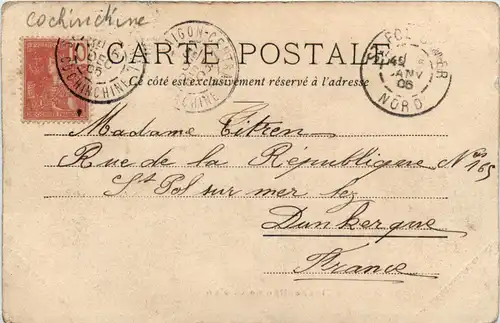 cochinchine
CARTE POSTALE
Ce côté est exclusivement réservé à l'adresse
COCHINCHINE
SAIGON-CENTRAL
COCHINCHINE
NORD
Madame Titren
Rue de la République Nos 165
St Pol sur mer lez
Dunkerque
France